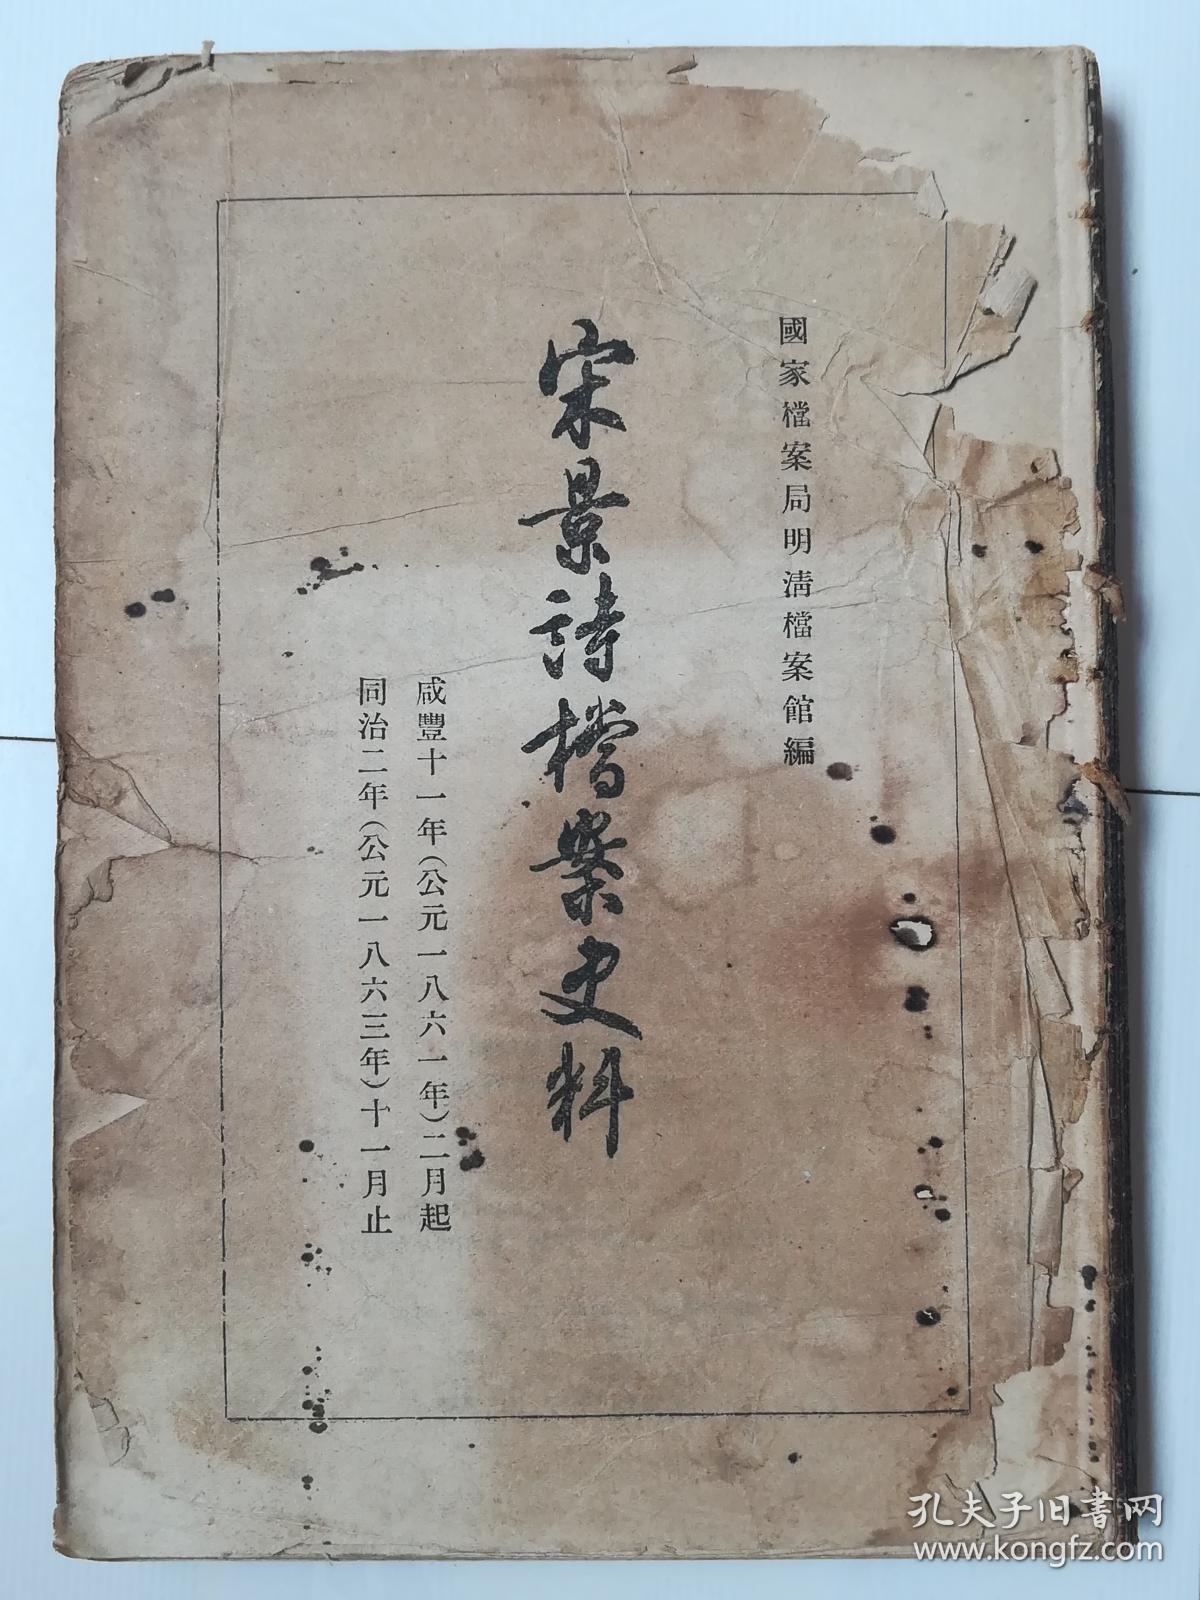 國家檔案局明清檔案館編
宋景詩檔案史料
咸豐十一年(公元一八六一年)二月起
同治二年(公元一八六三年)十一月止
孔夫子旧書网
www.kongfz.com